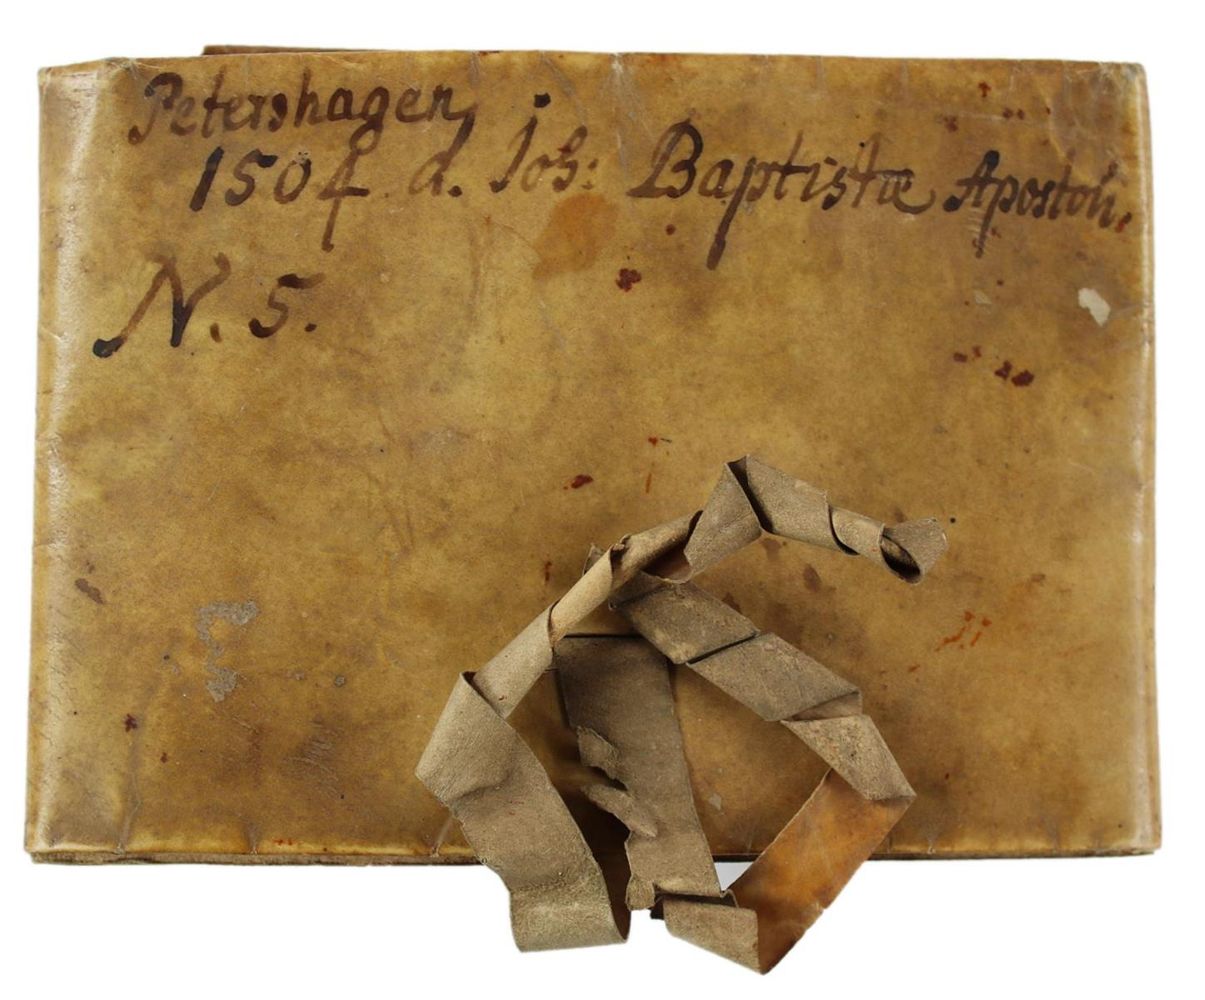 Petershagen
1504 d. Joh: Baptistæ Apostoli.
N. 5.